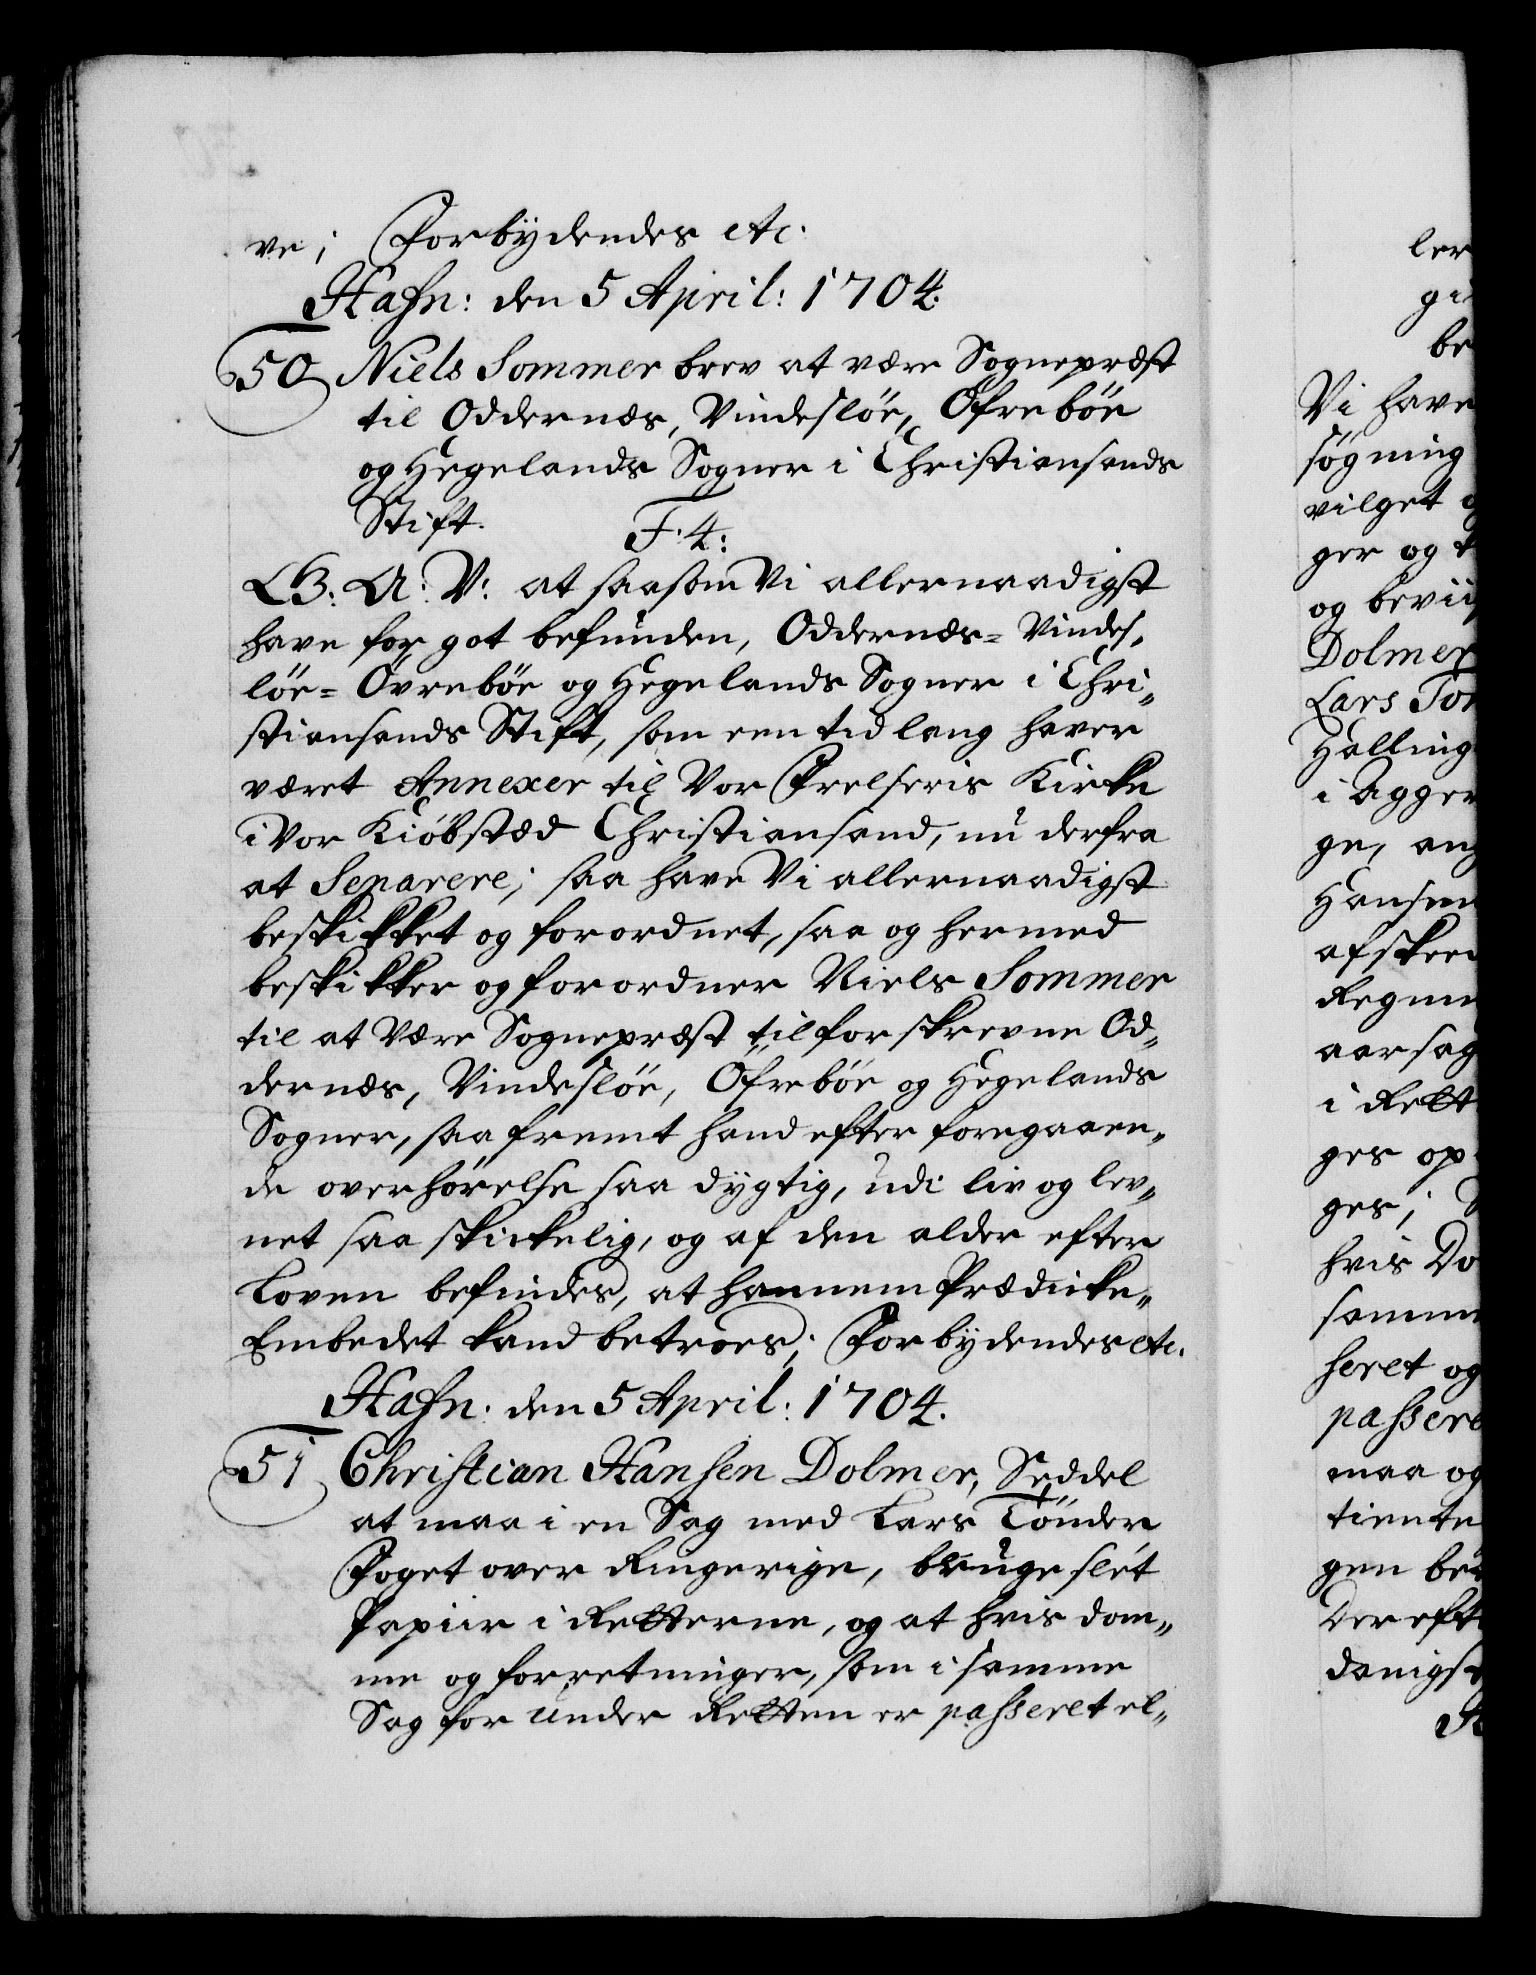 ve; Forbydendes etc.
Hafn: den 5 April: 1704.
50 Niels Sommer brev at være Sognepræst
til Oddernæs, Vindesløe, Öfrebøe
og Hegelands Sogner i Christiansands
Stift. F. 4:
G: A: V: at saasom Vi allernaadigst
have for got befunden, Oddernæs= Vindes,
løe= Övrebøe og Hegelands Sogner i Chri„
stiansands Stift, som een tid lang haver
været Annexer til Vor Frelseris Kirke
i Vor Kiøbstæd Christiansand, nu derfra
at Separere; saa have Vi allernaadigst
beskikket og forordnet, saa og hermed
beskikker og forordner Niels Sommer
til at Være Sognepræst til forskrevne Od„
dernæs, Vindesløe, Öfrebøe og Hegelands
Sogner, saafremt hand efter foregaaen„
de overhørelse saa dygtig, udi liv og lev„
net saa skickelig, og af den alder efter
Loven befindes, at hannem Prædicke„
Embedet kand betroes; Forbydendes etc.
Hafn: den 5 April: 1704.
51 Christian Hansen Dolmer, Seddel
at maa i en Sag med Lars Tönder
Foget over Ringerige, bruge slet
Papiir i Retterne, og at hvis dom„
me og forretninger, som i samme
Sag for Under Retten er passeret el„
ler
be
Vi have
søgning
vilget
ger og
og beviis
Dolmer
Lars
Halling
i Agger
ge,
Hansen
aarsag
i Rett
ges op
ges;
hvis Do
samm
seret og
passere
maa og
tiente
gen
Der eft